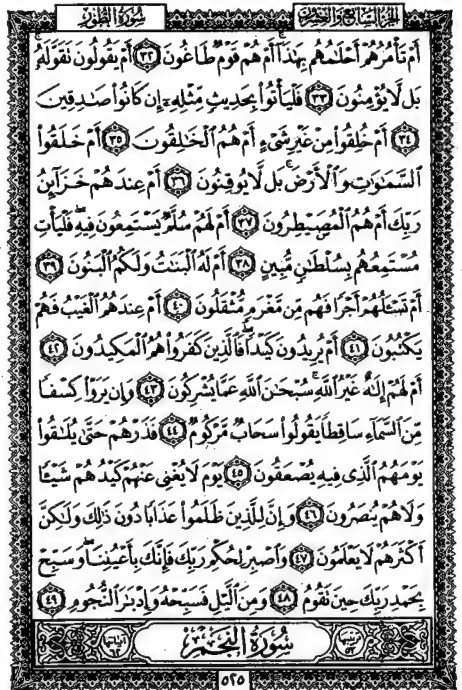 سُورَةُ الطُّورِ الجُزْءُ السَّابِعُ وَالْعِشْرُونَ
أَمْ تَأْمُرُهُمْ أَحْلَٰمُهُم بِهَٰذَآ أَمْ هُمْ قَوْمٌ طَاغُونَ ٣٢ أَمْ يَقُولُونَ تَقَوَّلَهُۥ
بَل لَّا يُؤْمِنُونَ ٣٣ فَلْيَأْتُوا۟ بِحَدِيثٍ مِّثْلِهِۦٓ إِن كَانُوا۟ صَٰدِقِينَ
٣٤ أَمْ خُلِقُوا۟ مِنْ غَيْرِ شَىْءٍ أَمْ هُمُ الْخَٰلِقُونَ ٣٥ أَمْ خَلَقُوا۟
السَّمَٰوَٰتِ وَالْأَرْضَ بَل لَّا يُوقِنُونَ ٣٦ أَمْ عِندَهُمْ خَزَآئِنُ
رَبِّكَ أَمْ هُمُ الْمُصَۣيْطِرُونَ ٣٧ أَمْ لَهُمْ سُلَّمٌ يَسْتَمِعُونَ فِيهِ فَلْيَأْتِ
مُسْتَمِعُهُم بِسُلْطَٰنٍ مُّبِينٍ ٣٨ أَمْ لَهُ الْبَنَٰتُ وَلَكُمُ الْبَنُونَ ٣٩
أَمْ تَسْـَٔلُهُمْ أَجْرًا فَهُم مِّن مَّغْرَمٍ مُّثْقَلُونَ ٤٠ أَمْ عِندَهُمُ الْغَيْبُ فَهُمْ
يَكْتُبُونَ ٤١ أَمْ يُرِيدُونَ كَيْدًا فَالَّذِينَ كَفَرُوا۟ هُمُ الْمَكِيدُونَ ٤٢
أَمْ لَهُمْ إِلَٰهٌ غَيْرُ اللَّهِ سُبْحَٰنَ اللَّهِ عَمَّا يُشْرِكُونَ ٤٣ وَإِن يَرَوْا۟ كِسْفًا
مِّنَ السَّمَآءِ سَاقِطًا يَقُولُوا۟ سَحَابٌ مَّرْكُومٌ ٤٤ فَذَرْهُمْ حَتَّىٰ يُلَٰقُوا۟
يَوْمَهُمُ الَّذِى فِيهِ يُصْعَقُونَ ٤٥ يَوْمَ لَا يُغْنِى عَنْهُمْ كَيْدُهُمْ شَيْـًٔا
وَلَا هُمْ يُنصَرُونَ ٤٦ وَإِنَّ لِلَّذِينَ ظَلَمُوا۟ عَذَابًا دُونَ ذَٰلِكَ وَلَٰكِنَّ
أَكْثَرَهُمْ لَا يَعْلَمُونَ ٤٧ وَاصْبِرْ لِحُكْمِ رَبِّكَ فَإِنَّكَ بِأَعْيُنِنَا وَسَبِّحْ
بِحَمْدِ رَبِّكَ حِينَ تَقُومُ ٤٨ وَمِنَ الَّيْلِ فَسَبِّحْهُ وَإِدْبَٰرَ النُّجُومِ ٤٩
سُورَةُ النَّجْمِ
٥٢٥